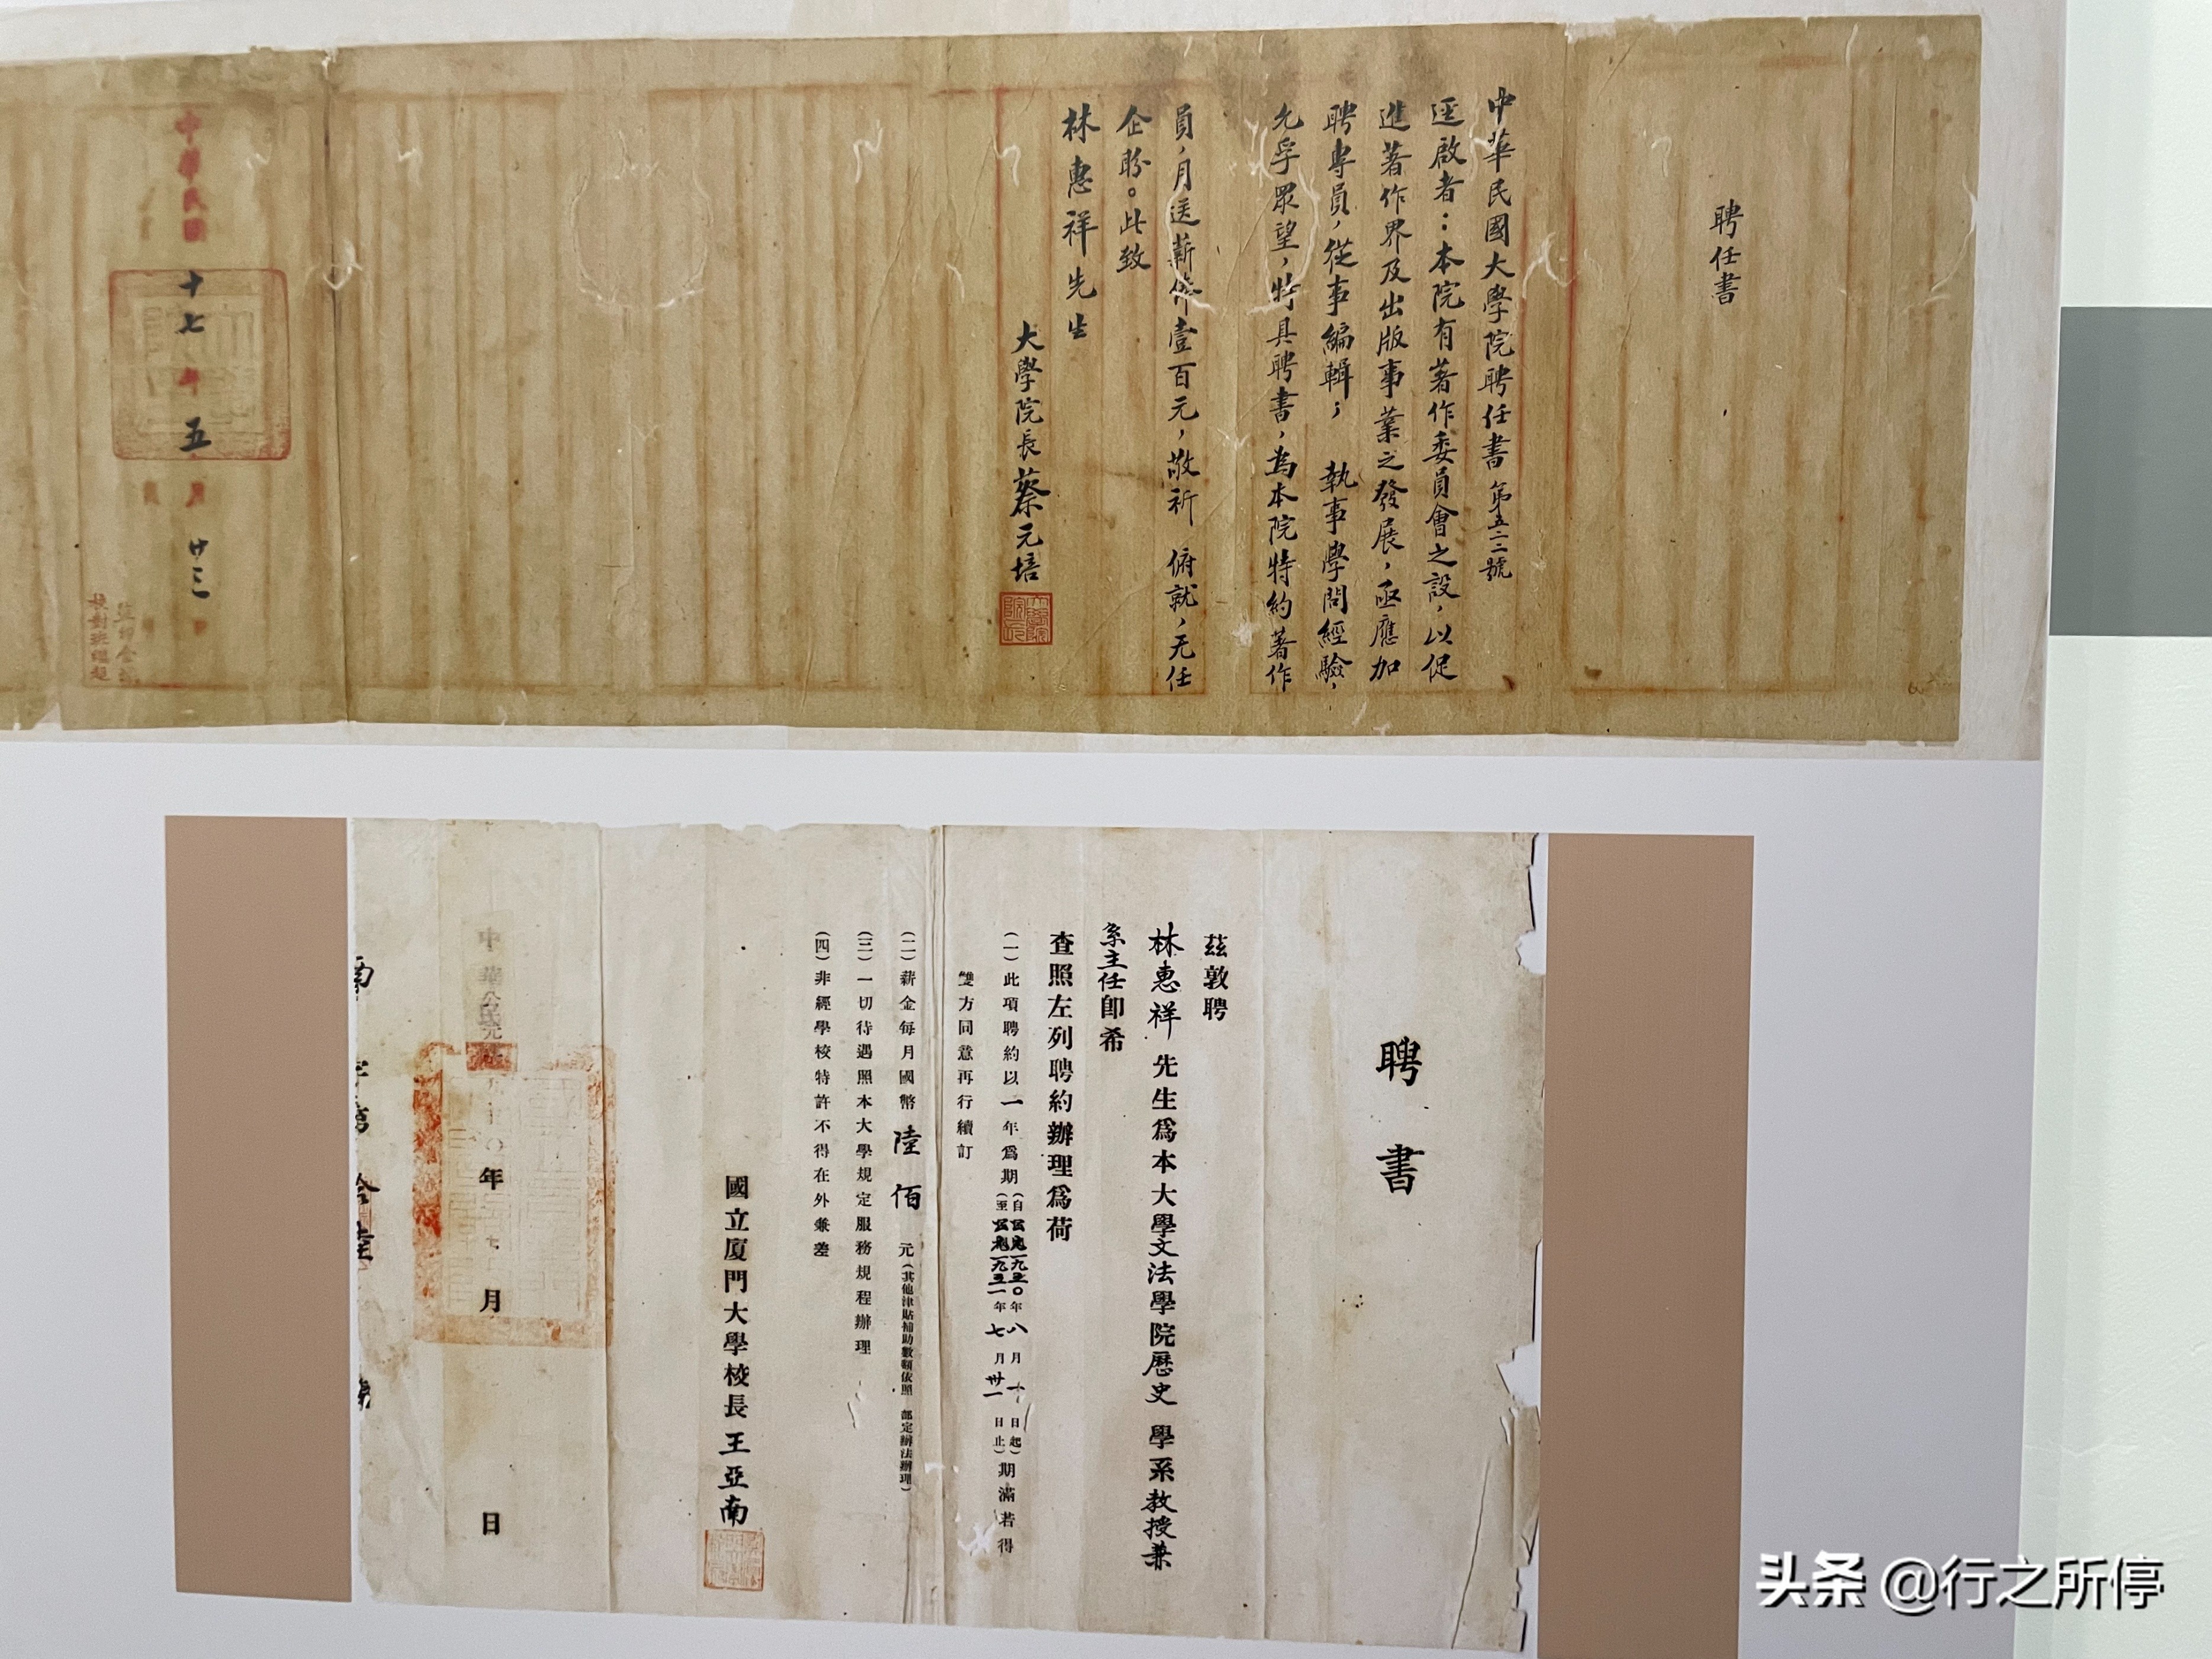 聘任書
中華民國大學院聘任書 第五二二號
逕啟者：本院有著作委員會之設，以促
進著作界及出版事業之發展，亟應加
聘專員，從事編輯； 執事學問經驗，
允孚眾望，特具聘書，為本院特約著作
員，月送薪俸壹百元，敬祈 俯就，无任
企盼。此致
林惠祥先生
大學院長蔡元培
中華民國十七年五月廿三日
聘書
茲敦聘
林惠祥先生爲本大學文法學院歷史學系教授兼
系主任卽希
查照左列聘約辦理爲荷
（一）此項聘約以一年爲期（自公元一九五〇年八月一日起
至公元一九五一年七月卅一日止）期滿若得
雙方同意再行續訂
（二）薪金每月國幣陸佰元（其他津貼補助數額依照 部定辦法辦理）
（三）一切待遇照本大學規定服務規程辦理
（四）非經學校特許不得在外兼差
國立厦門大學校長王亞南
年 月 日
头条 @行之所停